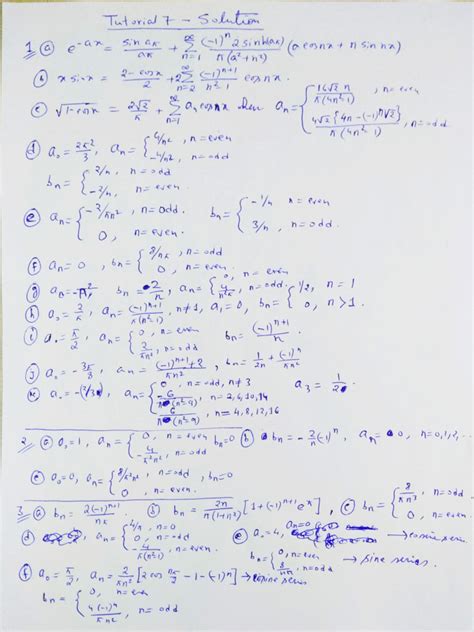 Tutorial 7 - Solution
1. (a) e^{-ax} = sin aπ/aπ + Σ_{n=1}^{∞} (-1)^n 2 sinh(aπ)/π(a²+n²) (a cos nx + n sin nx)
(b) x sin x = (2 - cos x)/2 + 2Σ_{n=2}^{∞} (-1)^{n+1}/(n²-1) cos nx.
(c) √(1-cos x) = 2√2/π + Σ_{n=1}^{∞} a_n cos nx when a_n = { 16√2 n/π(4n²-1), n = even
4√2{4n-(-1)^n√2}/π(4n²-1), n = odd
(d) a_0 = 2π²/3, a_n = { 4/n², n = even
-4/n², n = odd
b_n = { 2/n, n = odd
-2/n, n = even
(e) a_n = { -2/πn², n = odd. b_n = { -1/n, n = even
0, n = even. 3/n, n = odd
(f) a_n = 0, b_n = { 8/nπ, n = odd
0, n = even.
(g) a_0 = -π², b_n = 2/n, a_n = { 0, n = even
4/n²π, n = odd
(h) a_0 = 2/π, a_n = (-1)^{n+1}/π(n²-1), n ≠ 1, a_1 = 0, b_n = { 1/2, n = 1
0, n > 1.
(i) a_0 = π/2, a_n = { 0, n = even b_n = (-1)^{n+1}/n
2/πn², n = odd
(j) a_0 = -3π/3, a_n = (-1)^{n+1}+2/πn², b_n = 1/2n + (-1)^n/πn
(k) a_0 = -(2/3π), a_n = { 0, n = odd, n ≠ 3 a_3 = 1/2
-6/π(n²-9), n = 2, 6, 10, 14
6/π(n²-9), n = 4, 8, 12, 16
2. (a) a_0 = 1, a_n = { 0, n = even b_n = 0 (b) b_n = -2/n(-1)^n, a_n = 0, n = 0, 1, 2, ...
-4/π²n², n = odd
(c) a_0 = 0, a_n = { 8/π²n², n = odd, b_n = 0
0, n = even.
3. (a) b_n = 2(-1)^{n+1}/nπ (b) b_n = 2n/π(1+n²) [1+(-1)^{n+1}e^π], (c) b_n = { 8/πn³, n = odd
0, n = even.
(d) a_n = { 4/π, n = 0
0, n = odd
-4/π(n²-1), n = even
(e) a_0 = 4, a_n = 0 → cosine series
b_n = { 0, n = even
8/nπ, n = odd → sine series.
(f) a_0 = π/2, a_n = 2/πn² [2 cos nπ/2 - 1 - (-1)^n] → cosine series
b_n = { 0, n = even
4(-1)^n/πn², n = odd